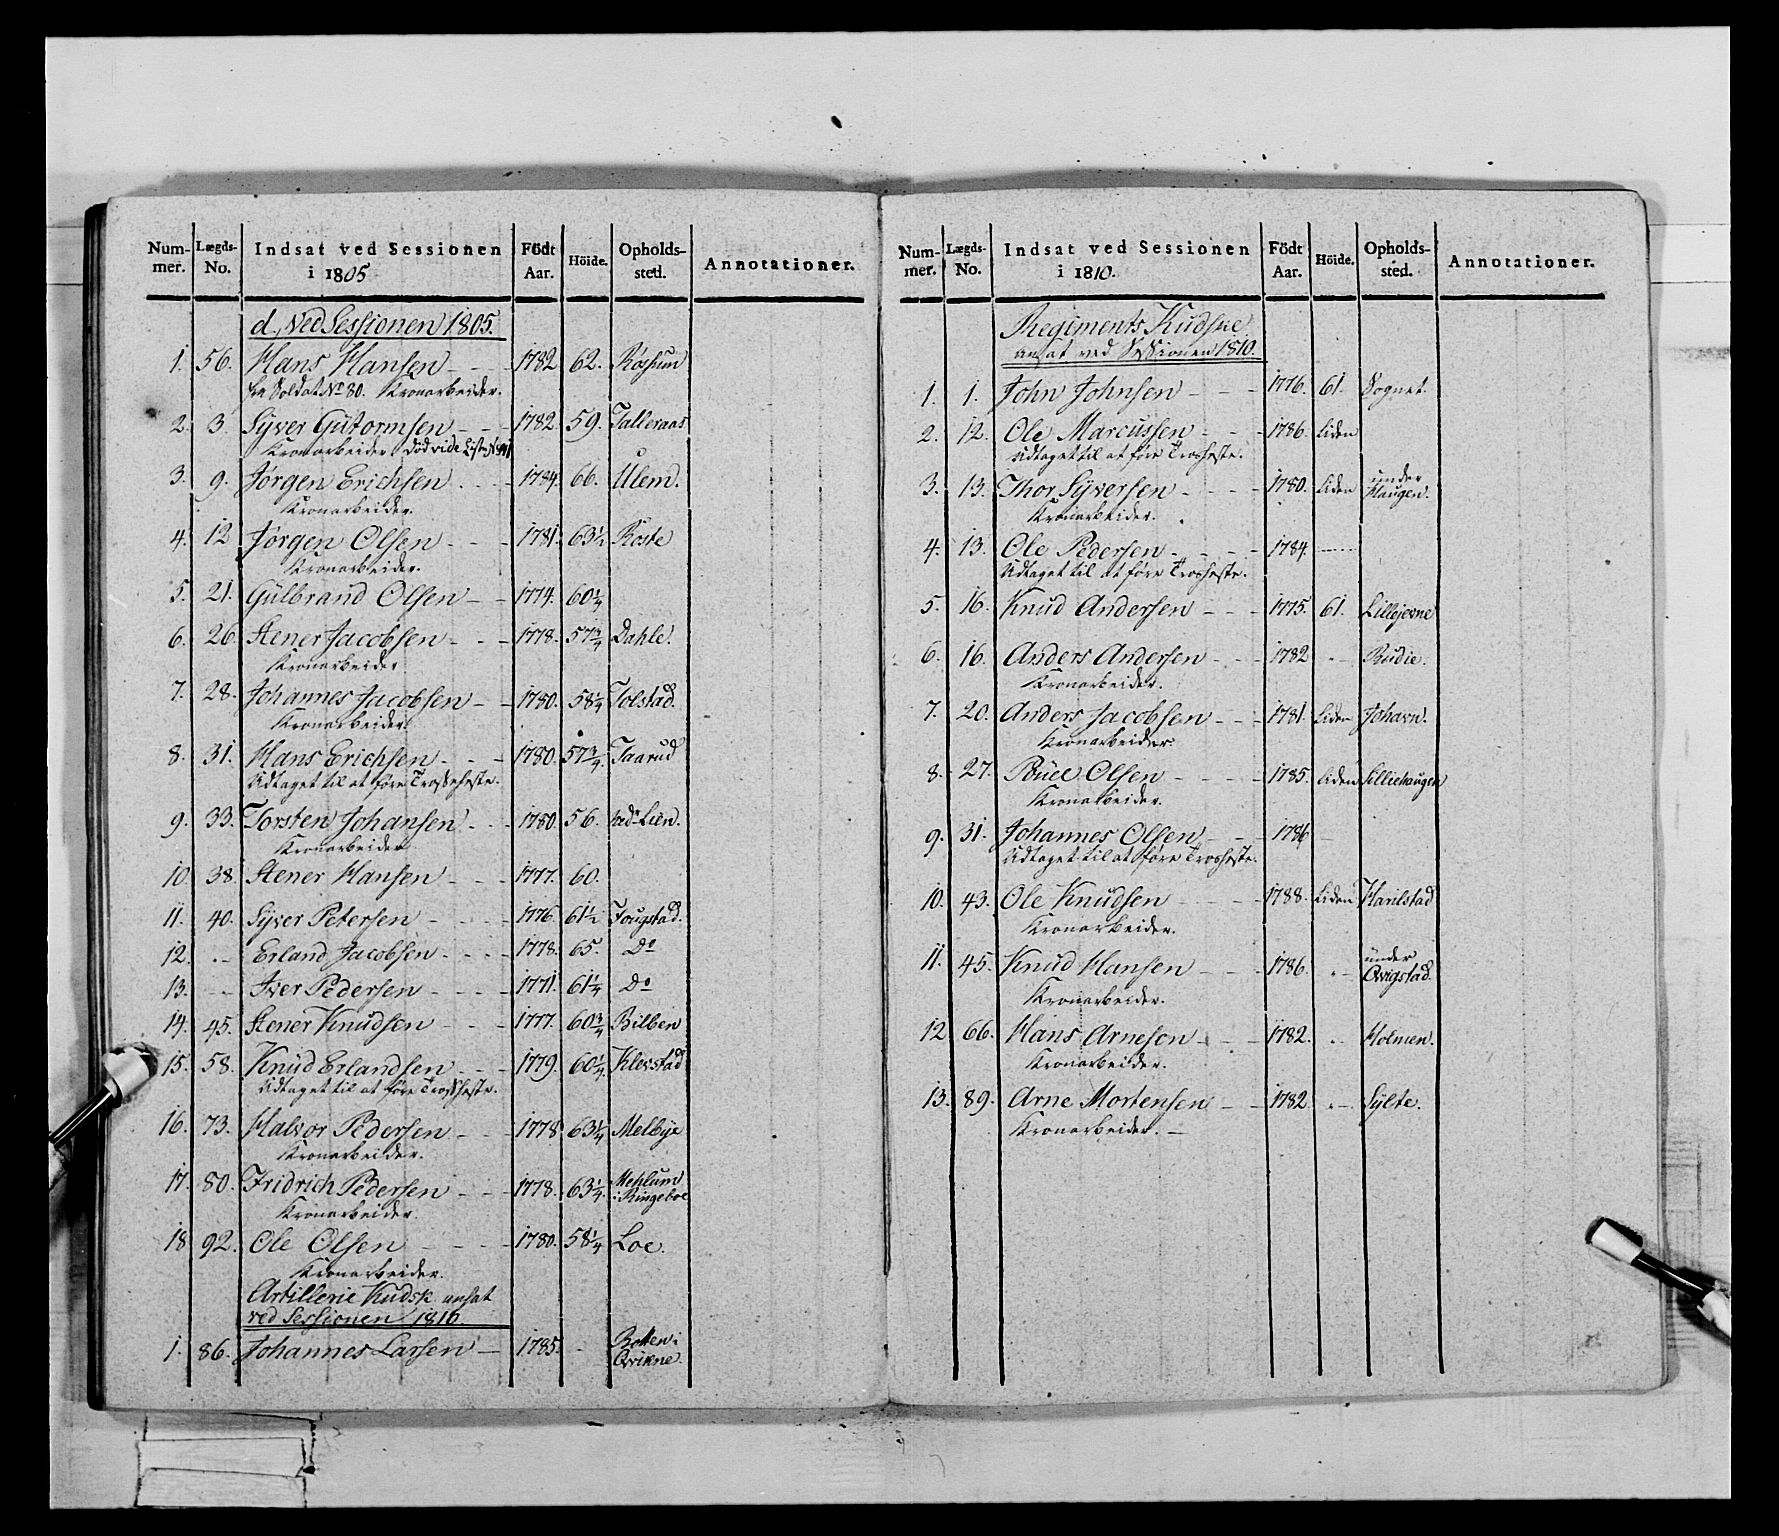 Num- Lægds- Indsat ved Sessionen Födt Höide. Opholds- Annotationer.
mer. No. i 1805 Aar. sted.
d, Ved Sessionen 1805.
1. 56. Hans Hansen 1782 62.
fra Soldat No 80. Kronarbeider.
2. 3. Syver Gutormsen 1782 59. Talleraas
Kronarbeider. Död vide Liste
3. 9. Jørgen Erichsen 1784. 66. Ulem.
Kronarbeider.
4. 12 Jørgen Olsen 1781. 63½ Roste
Kronarbeider.
5. 21. Gulbrand Olsen 1774. 60¼
6. 26. Stener Jacobsen 1778. 57¾ Dahle.
Kronarbeider
7. 28. Johannes Jacobsen 1780. 58¼ Tolstad.
Kronarbeider
8. 31. Hans Erichsen 1780. 57¾ Taarud
Udtaget til at føre Trosseheste.
9. 33. Torsten Johansen 1780. 56. ved Lien.
Kronarbeider
10. 38. Stener Hansen 1777. 60.
11. 40. Syver Petersen 1776. 61½ Fougstad.
12. Erland Jacobsen 1778. 65. Do
13. Iver Pedersen 1771. 61¼ Do
14. 45. Stener Knudsen 1777. 60¾ Bilben
15. 58. Knud Erlandsen 1779. 60¼ Klevstad
Udtaget til at føre Trosheste.
16. 73. Halvor Pedersen 1778 63¼ Melbye
Kronarbeider.
17. 80. Fridrich Pedersen 1778. 63¼ Mehlum
Kronarbeider. i Ringeboe
18 92. Ole Olsen 1780. 58¼ Loe.
Kronarbeider.
Artillerie Kudsk ansat
ved Sessionen 1810.
1. 86. Johannes Larsen 1785. Botten i
Qvikne.
Num- Lægds- Indsat ved Sessionen Födt Höide. Opholds- Annotationer.
mer. No. i 1810. Aar. sted.
Regiments Kudske
ansat ved Sessionen 1810.
1. 1. John Johnsen 1776. 61. Sognet
2. 12. Ole Marcussen 1786. Liden
Udtaget til at føre Trosheste.
3. 13. Thor Syversen 1780. Liden under
Kronarbeider. Haugen.
4. 13. Ole Pedersen 1784.
Udtaget til at føre Trosheste.
5. 16. Knud Andersen 1775. 61.
6. 16. Anders Andersen 1782 Rudie.
Kronarbeider.
7. 20. Anders Jacobsen 1781. Liden
Kronarbeider.
8. 27. Pouel Olsen 1785. Liden Silliehaugen
Kronarbeider.
9. 31. Johannes Olsen 1786
Udtaget til at føre Trosheste.
10. 43. Ole Knudsen 1788. Liden Harilstad
Kronarbeider.
11. 45. Knud Hansen 1786. under
Kronarbeider. Qvigstad.
12 66. Hans Arneson 1782. Holmen.
Kronarbeider.
13. 89. Arne Mortensen 1782. Sylte.
Kronarbeider.